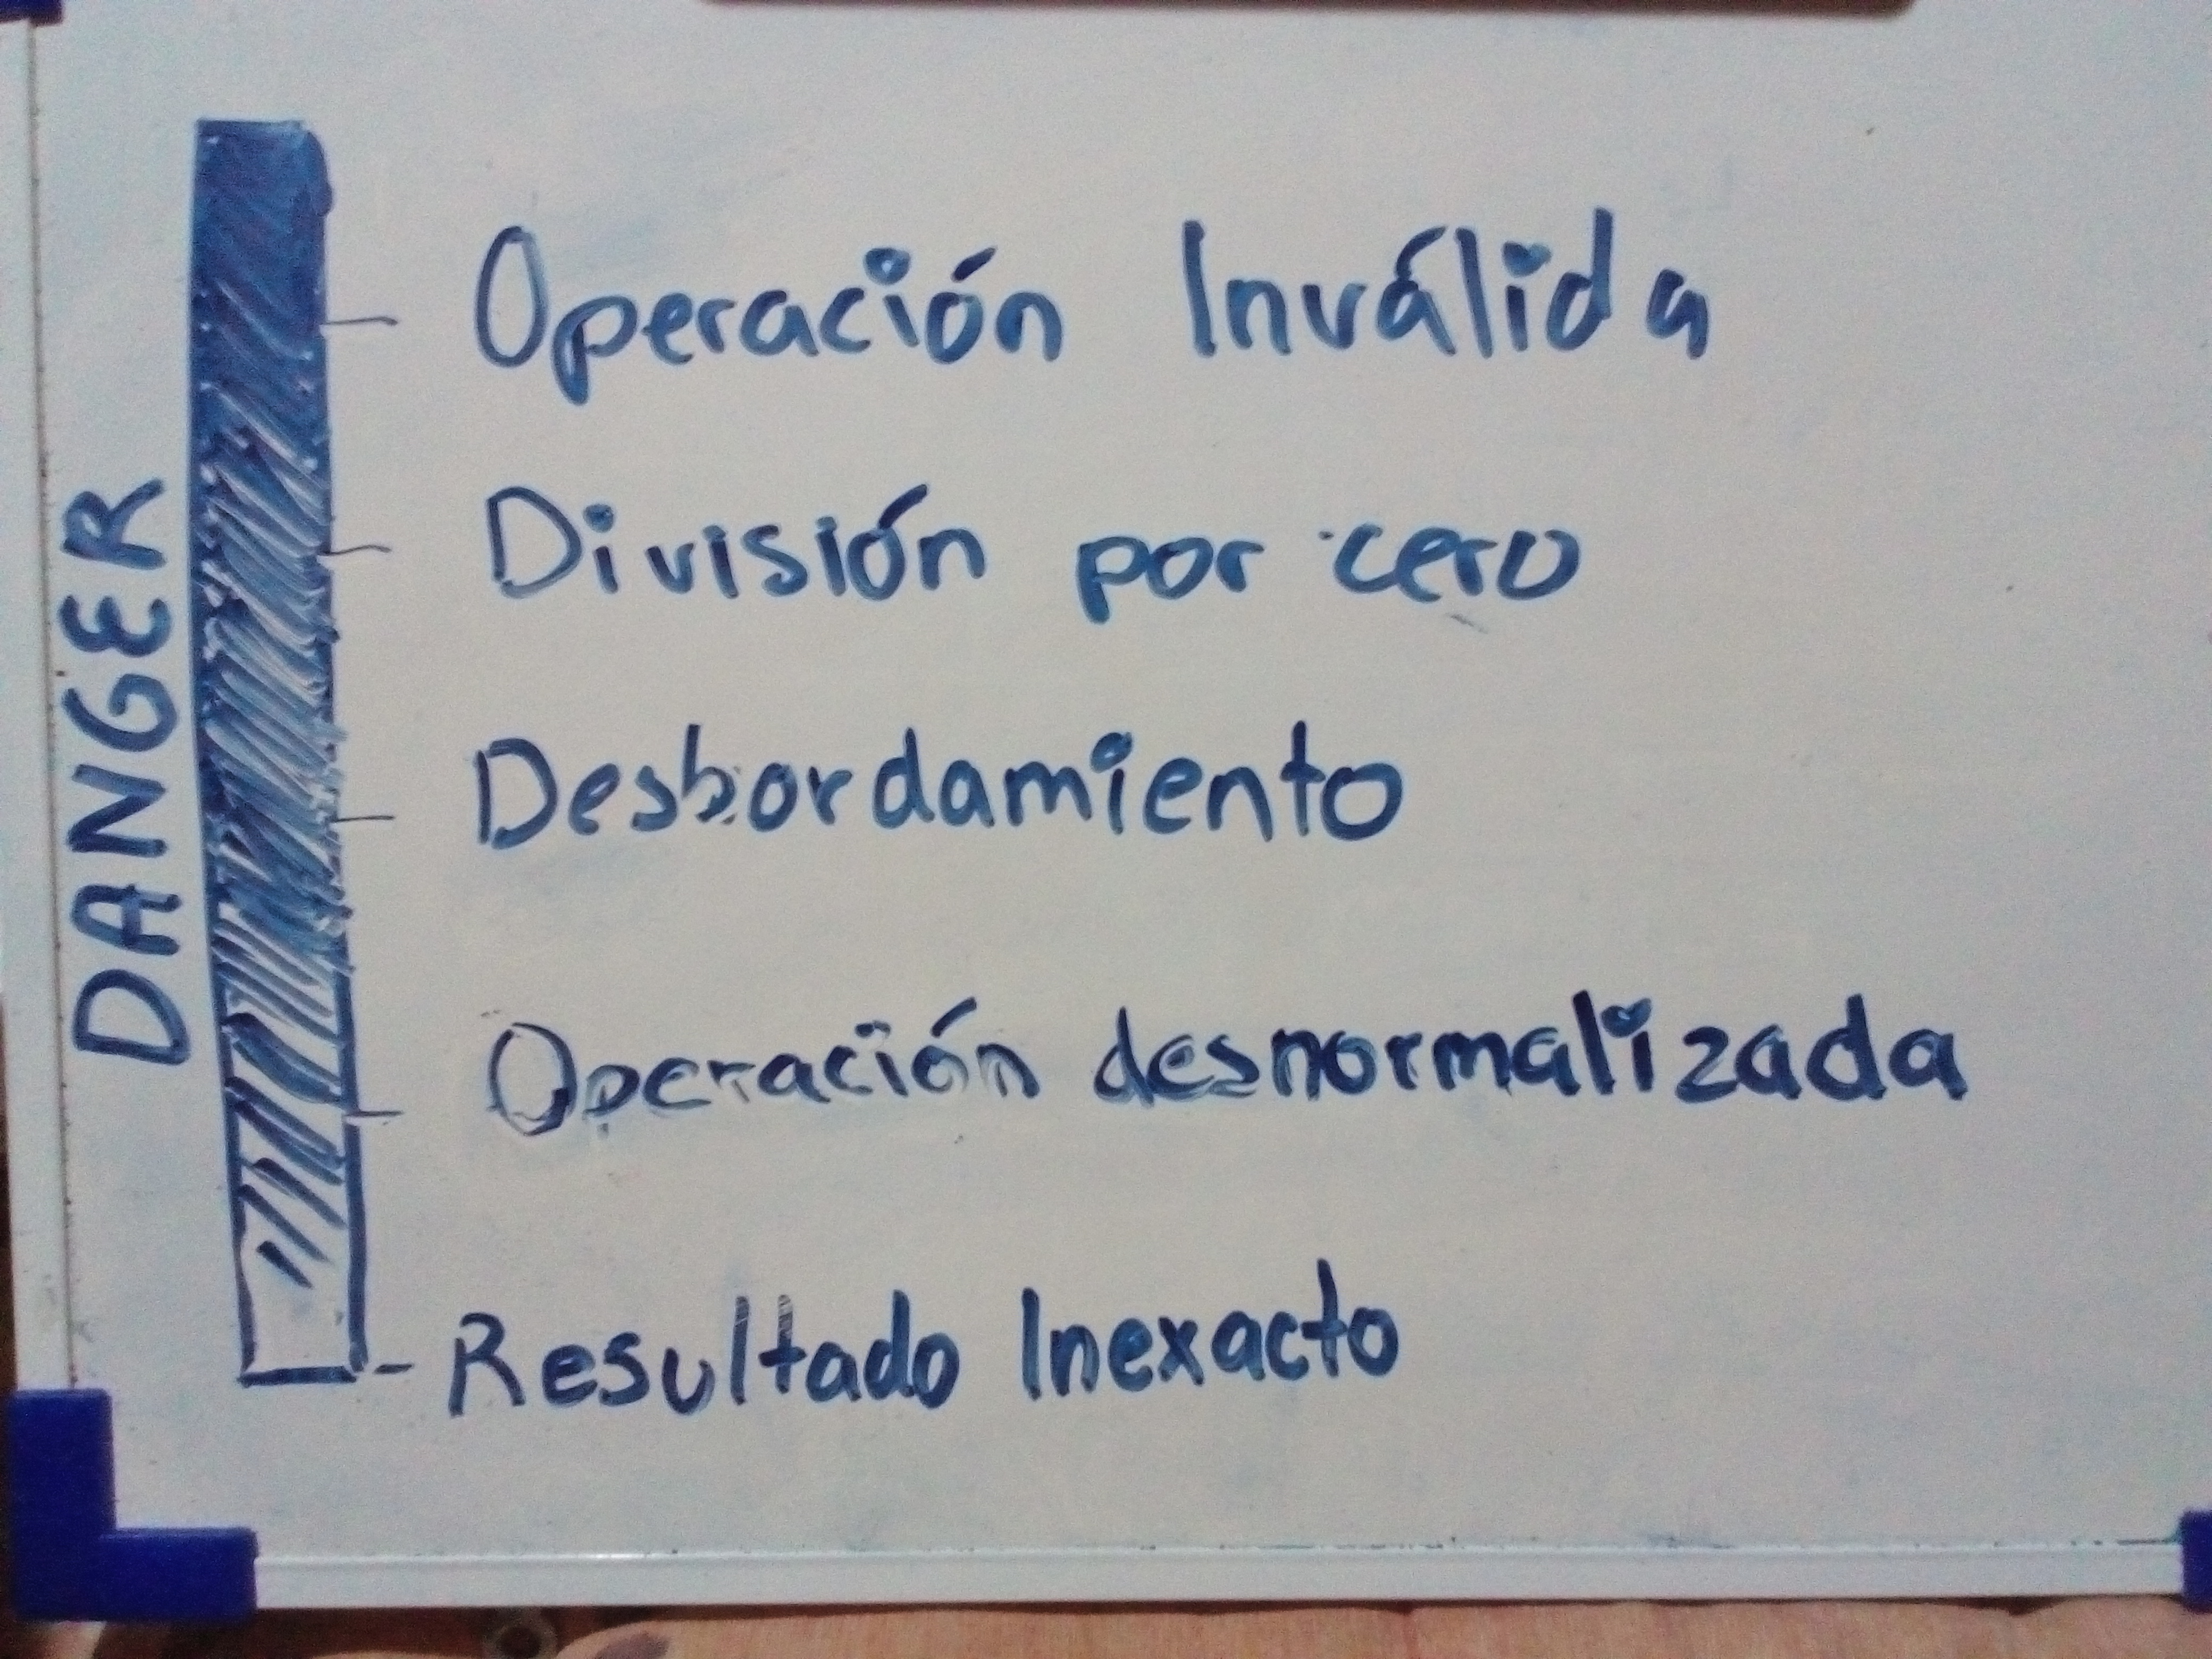 DANGER
Operación Inválida
División por cero
Desbordamiento
Operación desnormalizada
Resultado Inexacto